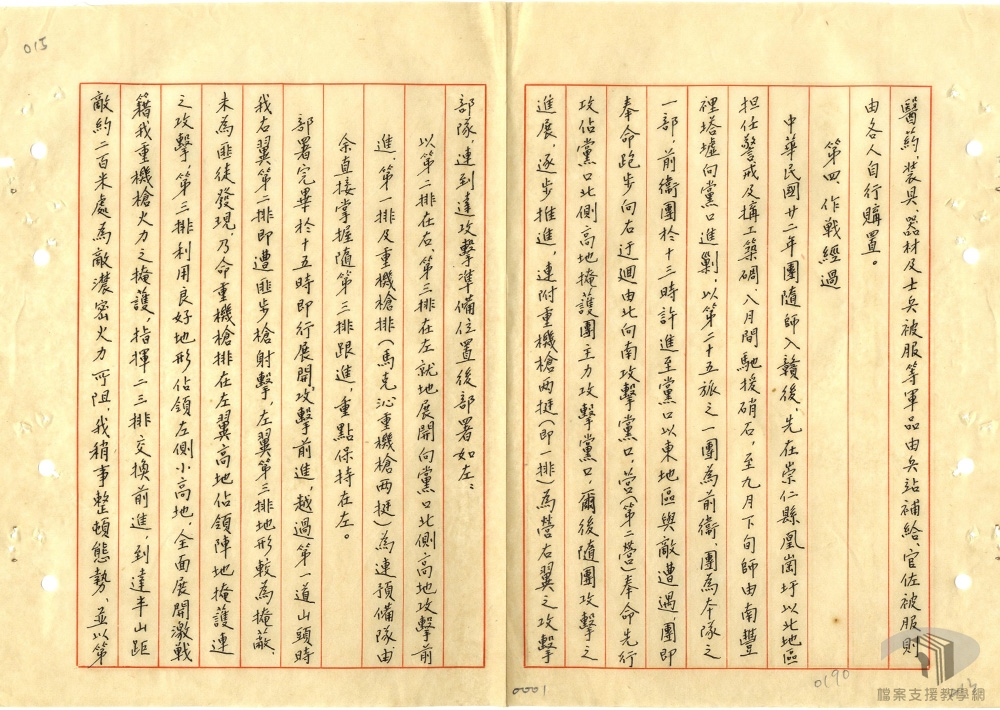 015
醫葯、裝具、器材及士兵被服等軍品由兵站補給、官佐被服則
由各人自行購置。
第四、作戰經過
中華民國廿二年團隨師入贛後、先在崇仁縣凰崗圩以北地區
担任警戒及搆工築碉、八月間馳援硝石，至九月下旬師由南豐
裡塔墟向黨口進剿，以第二十五旅之一團為前衛、團為本隊之
一部，前衛團於十三時許進至黨口以東地區與敵遭遇，團即
奉命跑步向右迂迴由北向南攻擊黨口，營（第二營）奉命先行
攻佔黨口北側高地掩護團主力攻擊黨口，爾後隨團攻擊之
進展，逐步推進，連附重機槍兩挺（即一排）為營右翼之攻擊
部隊，連到達攻擊準備位置後部署如左：
以第二排在右、第三排在左就地展開向黨口北側高地攻擊前
進、第一排及重機槍排（馬克沁重機槍兩挺）為連預備隊、由
余直接掌握隨第三排跟進，重點保持在左。
部署完畢於十五時即行展開攻擊前進，越過第一道山頭時
我右翼第二排即遭匪步槍射擊，左翼第三排地形較為掩蔽、
未為匪徒發現，乃命重機槍排在左翼高地佔領陣地掩護連
之攻擊，第三排利用良好地形佔領左側小高地，全面展開激戰
籍我重機槍火力之掩護，指揮二三排交換前進，到達半山距
敵約二百米處為敵濃密火力所阻，我稍事整頓態勢，並以第
0001
0190
檔案支援教學網